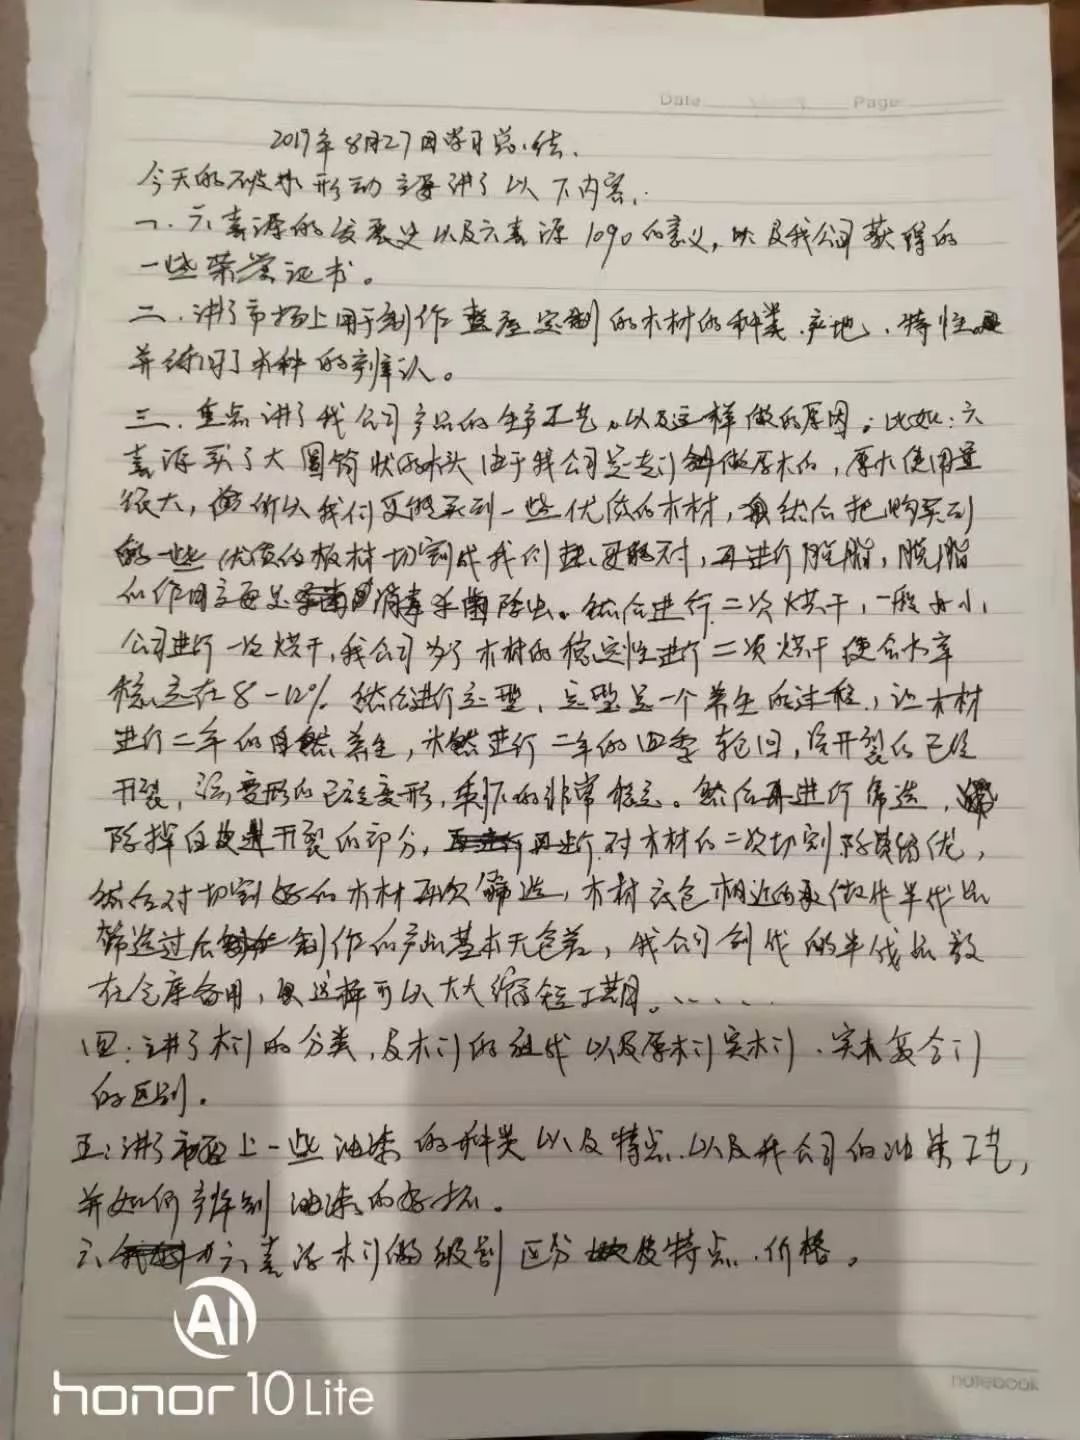 Date Page
2019年8月27日学习总结.
今天的破冰形动主要讲了以下内容.
一.六喜源的发展史以及六喜源1090的意义,以及我公司获得的
一些荣誉证书。
二.讲了市场上用于制作整屋定制的木材的种类.产地,特性.
并练习了木种的辨认。
三.重点讲了我公司产品的生产工艺,以及这样做的原因;比如:六
喜源买了大圆筒状的木头由于我公司是专门做原木的,原木使用量
很大,所以我们更能买到一些优质的木材,然后把购买到
的一些优质的板材切割成我们,再进行脱脂,脱脂
的作用主要是消毒杀菌除虫。然后进行二次烘干,一般小
公司进行一次烘干,我公司为了木材的稳定性进行二次烘干使含水率
稳定在8-12%然后进行定型,定型是一个养生的过程,让木材
进行二年的自然养生,进行二年的四季轮回,该开裂的已经
开裂,该变形的已经变形,剩下的非常稳定。然后再进行筛选,
除掉开裂的部分,对木材的二次切割除,优,
然后对切割好的木材再次筛选,木材底色相近的做成半成品
筛选过后制作的产品基本无色差,我公司制成的半成品放
在仓库备用,这样可以大大缩短工期。......
四:讲了木门的分类,及木门的组成以及原木门实木门.实木复合门
的区别。
五:讲了市面上一些油漆的种类以及特点.以及我公司的油漆工艺,
并如何辨别油漆的好坏。
六六喜源木门的级别区分及特点.价格。
AI
honor 10 Lite
notebook